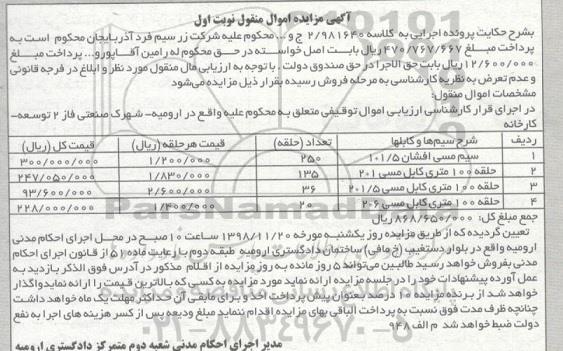 آگهی مزایده اموال منقول نوبت اول
بشرح حکایت پرونده اجرایی به کلاسه ۲/۹۸۱۶۴۰ ج و... محکوم علیه شرکت زر سیم فرد آذربایجان محکوم است به
پرداخت مبلغ ۴۷۰/۷۶۷/۶۶۷ ریال بابت اصل خواسته در حق محکوم له رامین آقاپورو... پرداخت مبلغ
۱۲/۶۰۰/۰۰۰ ریال بابت حق الاجرا در حق صندوق دولت. با توجه به ارزیابی مال منقول مورد نظر و ابلاغ در فرجه قانونی
و عدم تعرض به نظریه کارشناسی به مرحله فروش رسیده بقرار ذیل مزایده می‌شود
مشخصات اموال منقول:
در اجرای قرار کارشناسی ارزیابی اموال توقیفی متعلق به محکوم علیه واقع در ارومیه- شهرک صنعتی فاز ۲ توسعه-
کارخانه
ردیف شرح سیم‌ها و کابلها تعداد (حلقه) قیمت هر حلقه (ریال) قیمت کل (ریال)
۱ سیم مسی افشان ۱۰۱/۵ ۲۵۰ ۱/۲۰۰/۰۰۰ ۳۰۰/۰۰۰/۰۰۰
۲ حلقه ۱۰۰ متری کابل مسی ۲۰۱ ۱۳۵ ۱/۸۳۰/۰۰۰ ۲۴۷/۰۵۰/۰۰۰
۳ حلقه ۱۰۰ متری کابل مسی ۲۰۱/۵ ۳۶ ۲/۶۰۰/۰۰۰ ۹۳/۶۰۰/۰۰۰
۴ حلقه ۱۰۰ متری کابل مسی ۲۰۶ ۲۰ ۱/۴۰۰/۰۰۰ ۲۲۸/۰۰۰/۰۰۰
جمع مبلغ کل: ۸۶۸/۶۵۰/۰۰۰ ریال
تعیین گردیده که از طریق مزایده روز یکشنبه مورخه ۱۳۹۸/۱۱/۲۰ ساعت ۱۰ صبح در محل اجرای احکام مدنی
ارومیه واقع در بلوار دستغیب (خ مافی) ساختمان دادگستری ارومیه طبقه دوم با رعایت ماده ۵۱ از قانون اجرای احکام
مدنی بفروش خواهد رسید طالبین می‌توانند ۵ روز مانده به روز مزایده از اقلام مذکور در آدرس فوق الذکر بازدید به
عمل آورده پیشنهادات خود را در جلسه مزایده ارائه نماید مورد مزایده به کسی که بالاترین قیمت را ارائه نماید واگذار
خواهد شد از برنده مزایده ۱۰ درصد بعنوان پیش پرداخت اخذ و برای مابقی آن حداکثر مهلت یک ماه خواهد داشت
چنانچه ظرف مدت فوق نسبت به پرداخت الباقی بهای مزایده اقدام ننماید مبلغ ودیعه پس از کسر هزینه های اجرا به نفع
دولت ضبط خواهد شد م الف ۹۴۸
مدیر اجرای احکام مدنی شعبه دوم متمرکز دادگستری ارومیه
ParsNamadData
۰۲۱-۸۸۳۴۹۶۷۰-۵